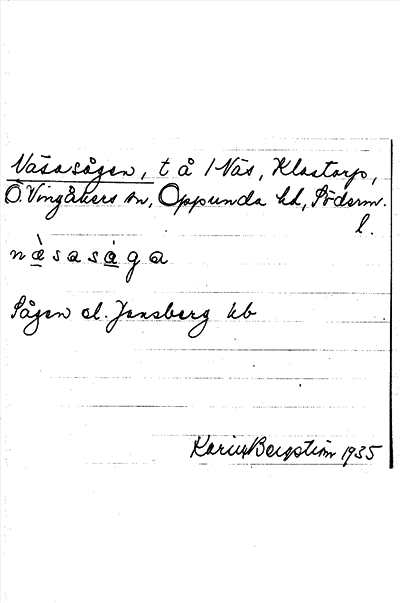 Näsasågen, t å 1 Näs, Klastorp,
Ö. Vingåkers sn, Oppunda hd, Söderm.
l.
nὰsasåga
Sågen el. Jensberg kb
Karin Bergström 1935